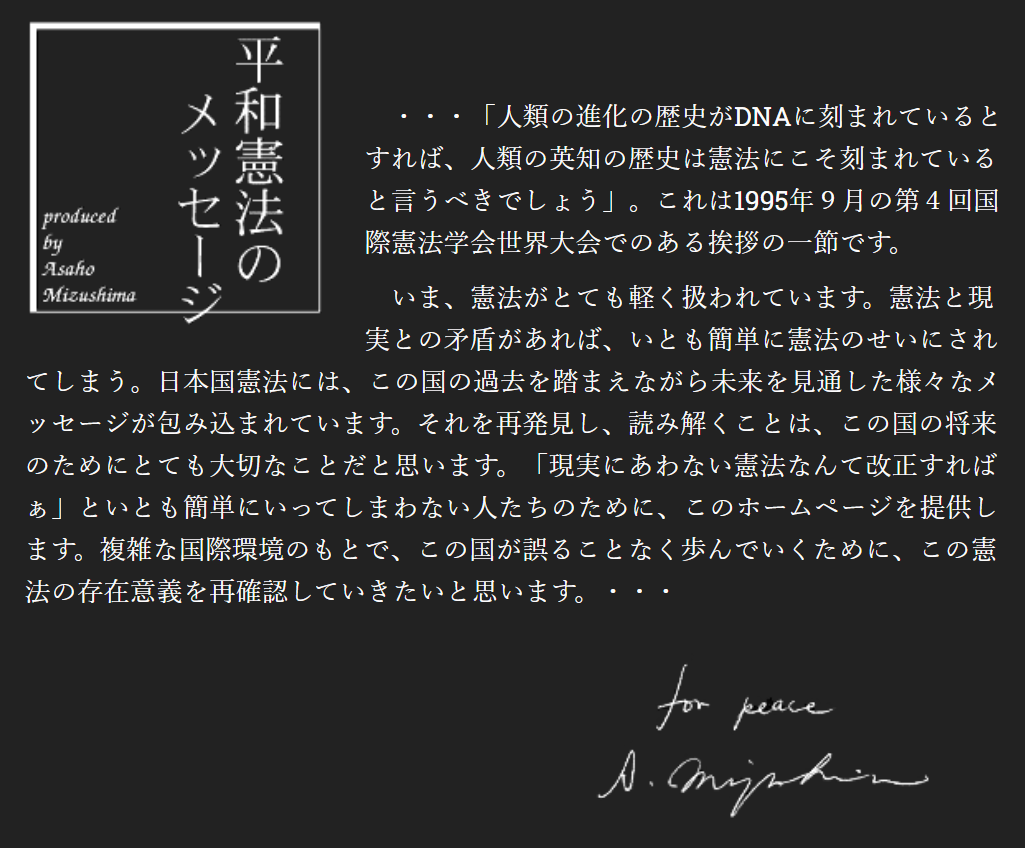 平和憲法の
メッセージ
produced
by
Asaho
Mizushima
・・・「人類の進化の歴史がDNAに刻まれていると
すれば、人類の英知の歴史は憲法にこそ刻まれている
と言うべきでしょう」。これは1995年９月の第４回国
際憲法学会世界大会でのある挨拶の一節です。
いま、憲法がとても軽く扱われています。憲法と現
実との矛盾があれば、いとも簡単に憲法のせいにされ
てしまう。日本国憲法には、この国の過去を踏まえながら未来を見通した様々なメ
ッセージが包み込まれています。それを再発見し、読み解くことは、この国の将来
のためにとても大切なことだと思います。「現実にあわない憲法なんて改正すればぁ」といとも簡単にいってしまわない人たちのために、このホームページを提供し
ます。複雑な国際環境のもとで、この国が誤ることなく歩んでいくために、この憲
法の存在意義を再確認していきたいと思います。・・・
for peace
A. Mizushima